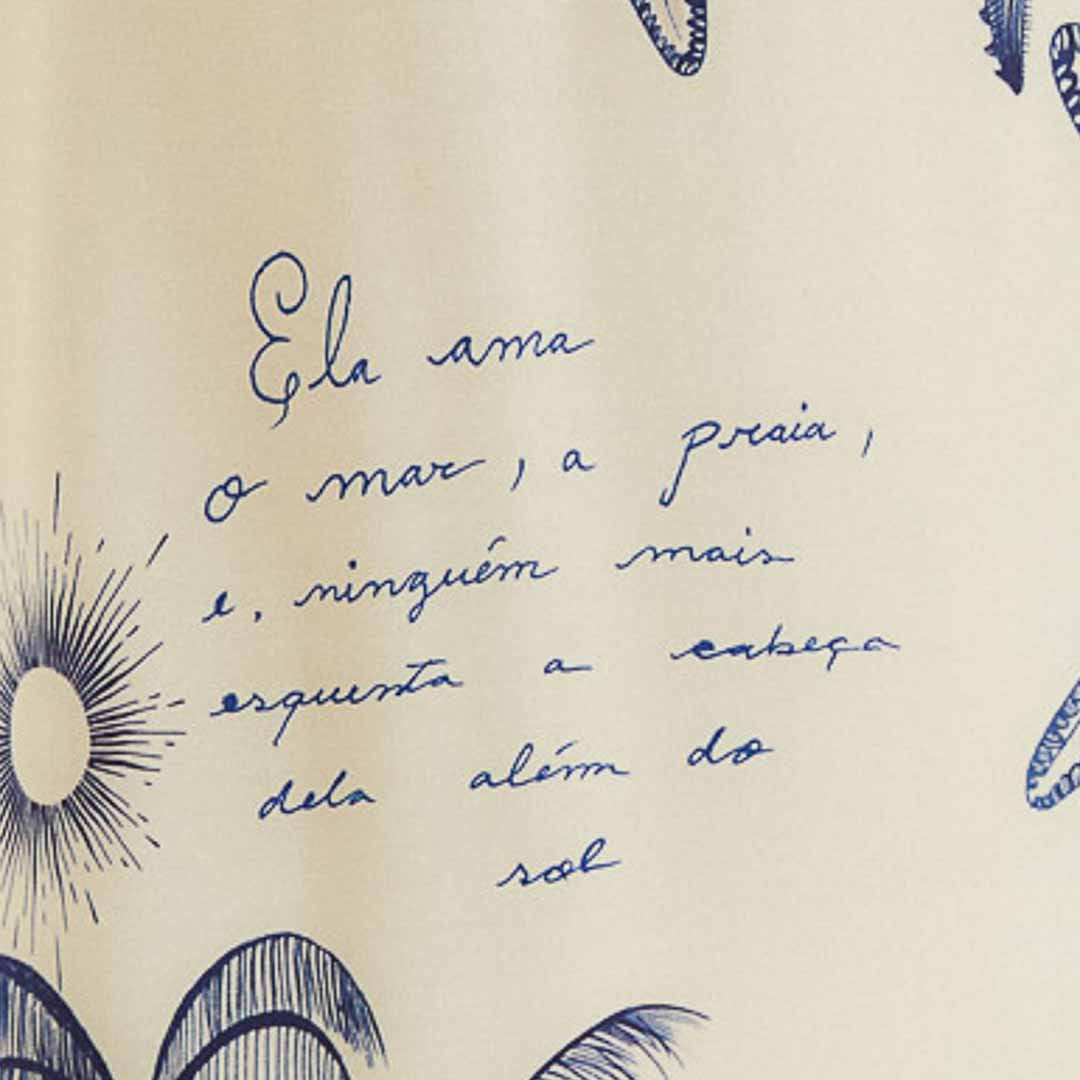 Ela ama
o mar, a praia,
e, ninguém mais
esquenta a cabeça
dela além do
sol